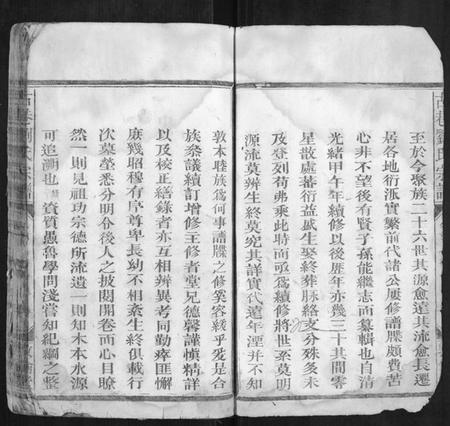 至於今聚族二十六世其源愈遠其流愈長遷
居各地衍派實繁前代諸公屢修譜牒頗費苦
心非不望後有賢子孫能繼志而纂輯也自清
光緒甲午年續修以後歷年亦幾三十其間零
星散處蕃衍益盛生娶終葬脈絡支分殊多未
及登列苟弗乘此時而亟為續修將世系莫明
源流莫辨生終莫究其詳實代遠年湮并不知
敦本睦族為何事譜牒之修奚容緩乎爰是合
族僉議續訂增修主修者堂兄德馨謹慎精詳
以及校正繕錄者亦互相辨異考同勤瘁匪懈
庶幾昭穆有序尊卑長幼不相紊生終俱載行
次墓塋悉分明俾後人之披閱開卷而心目瞭
然一則見祖功宗德所流遺一則知木本水源
可追溯也 賓質愚魯學問淺嘗知紀綱之整